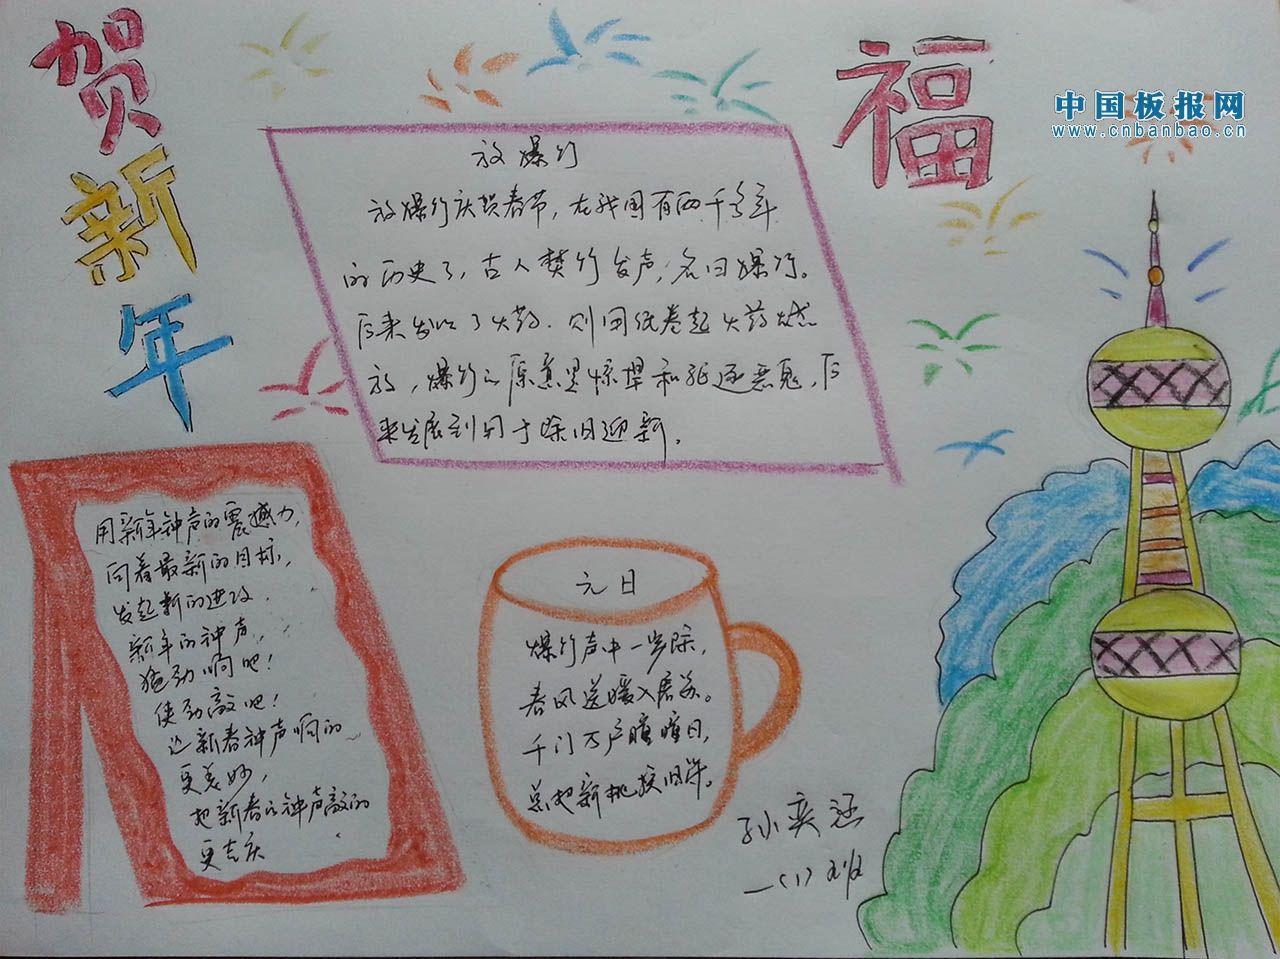 贺新年
福
中国板报网
www.cnbanbao.cn
放爆竹
放爆竹庆贺春节，在我国有两千多年
的历史了，古人焚竹发声，名曰爆竹。
后来发明了火药．则用纸卷起火药燃
放，爆竹的原意是惊惮和驱逐恶鬼，后
来发展到用于除旧迎新。
用新年钟声的震撼力，
向着最新的目标，
发起新的进攻．
新年的钟声，
猛劲响吧！
使劲敲吧！
让新春钟声响的
更美妙，
把新春的钟声敲的
更吉庆
元日
爆竹声中一岁除，
春风送暖入屠苏。
千门万户曈曈日，
总把新桃换旧符。
孙奕涵
一（1）班